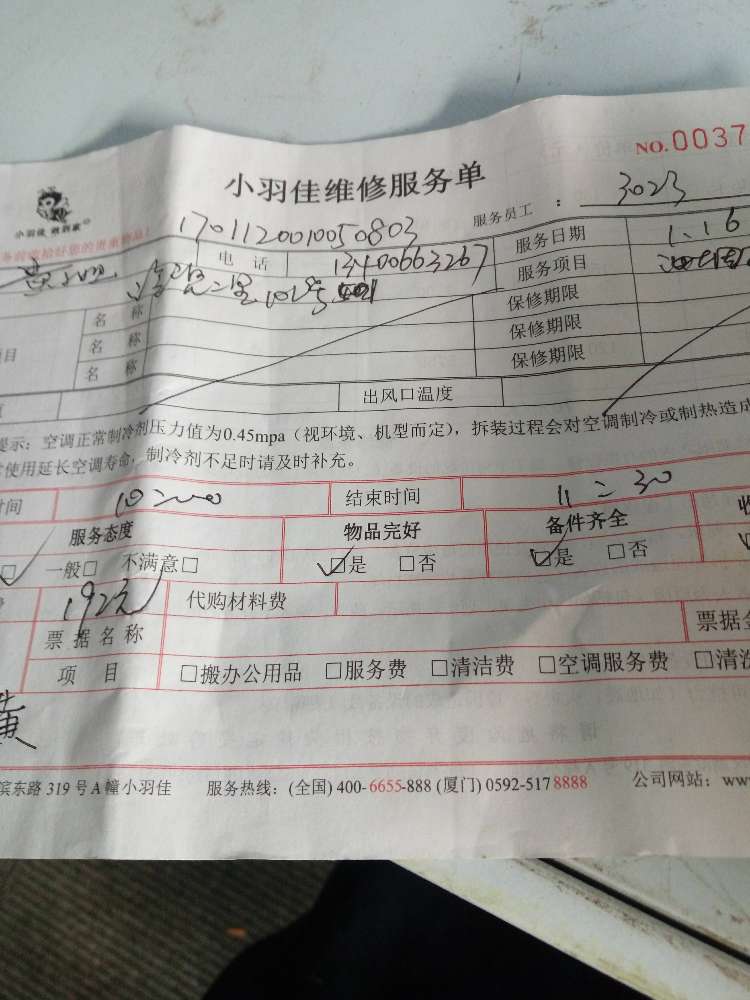 NO.0037
小羽佳维修服务单
小羽佳 做到家
务前收拾好您的贵重物品!
1701120010050803
服务员工 : 3023
电 话 13400663267 服务日期 1.16
服务项目
名 称 保修期限
项目 名 称 保修期限
名 称 保修期限
出风口温度
提示: 空调正常制冷剂压力值为0.45mpa (视环境、机型而定), 拆装过程会对空调制冷或制热造成
使用延长空调寿命, 制冷剂不足时请及时补充。
时间 10:00 结束时间 11:30
服务态度 物品完好 备件齐全
□ 一般□ 不满意□ □是 □否 □是 □否
192元 代购材料费
票据名称 票据金
项 目 □搬办公用品 □服务费 □清洁费 □空调服务费 □清洗
黄
滨东路 319 号 A 幢小羽佳 服务热线: (全国) 400-6655-888 (厦门) 0592-5178888 公司网站: www